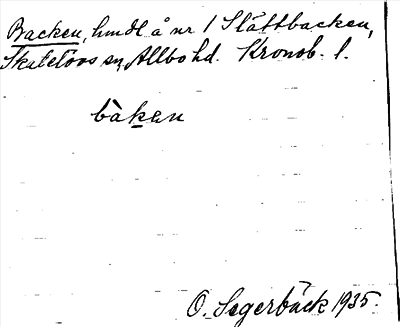 Backen, hmdl å nr 1 Slättbacken,
Skatelövs sn, Allbo hd. Kronob. l.
bàken
O. Segerbäck 1935.